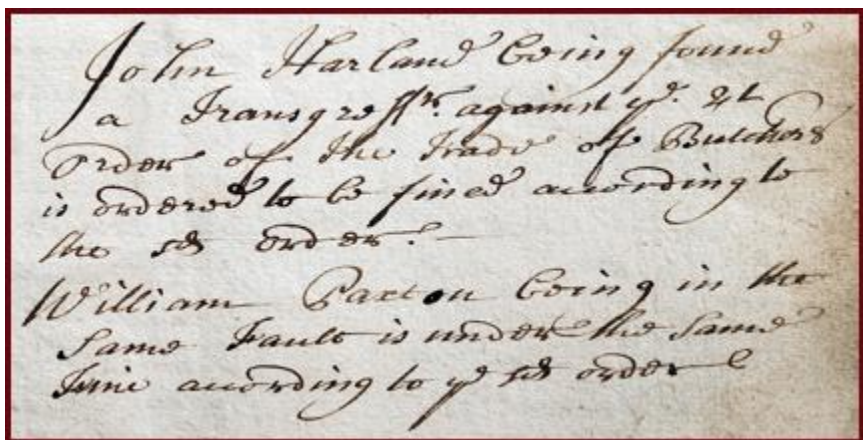 John Harland being found
a Transgressr. against ye.
Order of the Trade of Butchers
is ordered to be fined according to
the sd order.
William Paxton being in the
Same Fault is under the Same
according to ye sd order